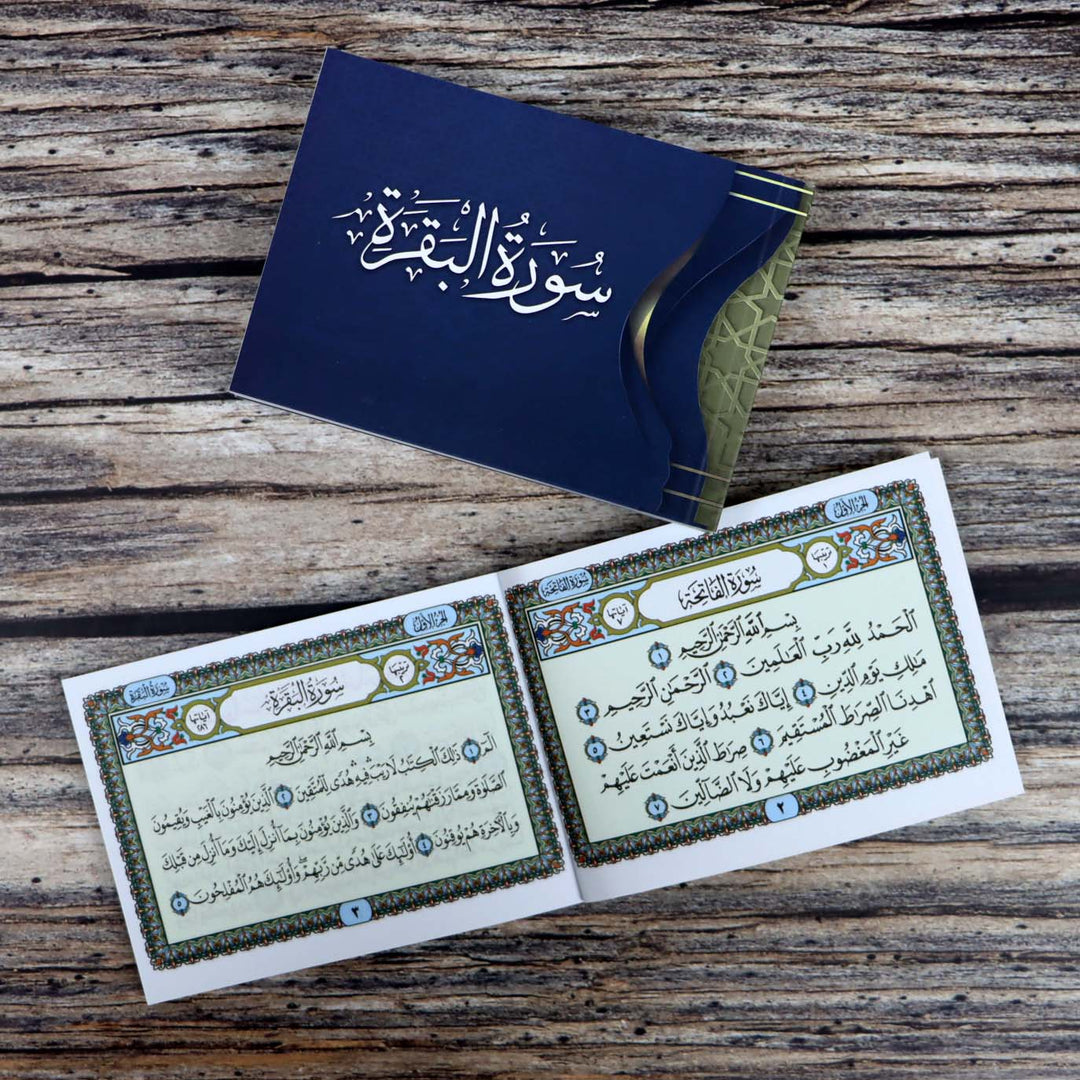 سُورَةُ الْبَقَرَةِ
الجزء الأول
سورة الفاتحة
ترتيبها ١
سُورَةُ الفَاتِحَةِ
آياتها ٧
بِسْمِ ٱللَّهِ ٱلرَّحْمَٰنِ ٱلرَّحِيمِ ١
ٱلْحَمْدُ لِلَّهِ رَبِّ ٱلْعَٰلَمِينَ ٢ ٱلرَّحْمَٰنِ ٱلرَّحِيمِ ٣
مَٰلِكِ يَوْمِ ٱلدِّينِ ٤ إِيَّاكَ نَعْبُدُ وَإِيَّاكَ نَسْتَعِينُ ٥
ٱهْدِنَا ٱلصِّرَٰطَ ٱلْمُسْتَقِيمَ ٦ صِرَٰطَ ٱلَّذِينَ أَنْعَمْتَ عَلَيْهِمْ
غَيْرِ ٱلْمَغْضُوبِ عَلَيْهِمْ وَلَا ٱلضَّآلِّينَ ٧
٢
الجزء الأول
سورة البقرة
ترتيبها ٢
سُورَةُ البَقَرَةِ
آياتها ٢٨٦
بِسْمِ ٱللَّهِ ٱلرَّحْمَٰنِ ٱلرَّحِيمِ
الٓمٓ ١ ذَٰلِكَ ٱلْكِتَٰبُ لَا رَيْبَ ۛ فِيهِ ۛ هُدًى لِّلْمُتَّقِينَ ٢ ٱلَّذِينَ يُؤْمِنُونَ بِٱلْغَيْبِ وَيُقِيمُونَ
ٱلصَّلَوٰةَ وَمِمَّا رَزَقْنَٰهُمْ يُنفِقُونَ ٣ وَٱلَّذِينَ يُؤْمِنُونَ بِمَآ أُنزِلَ إِلَيْكَ وَمَآ أُنزِلَ مِن قَبْلِكَ
وَبِٱلْأَخِرَةِ هُمْ يُوقِنُونَ ٤ أُو۟لَٰٓئِكَ عَلَىٰ هُدًى مِّن رَّبِّهِمْ ۖ وَأُو۟لَٰٓئِكَ هُمُ ٱلْمُفْلِحُونَ ٥
٣